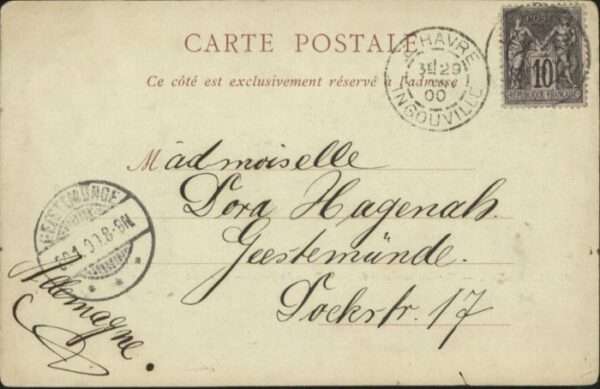 CARTE POSTALE
Ce côté est exclusivement réservé à l'adresse
HAVRE
3E 29
00
INGOUVILLE
POSTE
10
REPUBLIQUE FRANÇAISE
Mademoiselle
Dora Hagenah.
Geestemünde.
Dockstr. 17
Allemagne.
GEESTEMÜNDE
8-9N